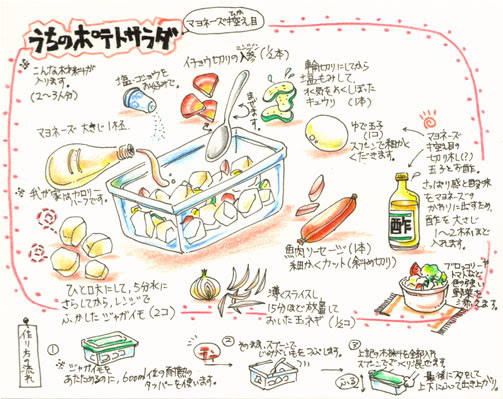 マヨネーズ控え目
うちのポテトサラダ
※こんな材料が
入ります。
(2〜3人分)
塩・コショウを
お好みで
イチョウ切りの人参(1/2本)
まぜます。
輪切りにしてから
塩もみして、
水気をよくしぼった
キュウリ(1本)
マヨネーズ 大さじ1杯…
※我が家はカロリー
ハーフです。
ゆで玉子
(1コ)
スプーンで細かく
くだきます。
マヨネーズ
控え目の
切り札(?)
玉子とお酢。
さっぱり感と酸味
をマヨネーズの
かわりに出すため、
酢を大さじ
1〜2ほど
入れます。
酢
魚肉ソーセージ(1本)
細かくカット(斜め切り)
ひと口大にして、5分水に
さらしてから、レンジで
ふかしたジャガイモ(2コ)
薄くスライスし
15分ほど放置して
おいた玉ネギ(1/2コ)
ブロッコリー
トマトなど
色の強い
野菜を
添えます。
作り方の流れ
①
※ジャガイモを
あたためるのに、600ml位の
タッパーを使います。
②
スプーンで
じゃがいもをつぶします。
③
上記の材料を全部入れ
スプーンでよく混ぜます。
ふる
最後にフタをして
上下にふって出き上がり。